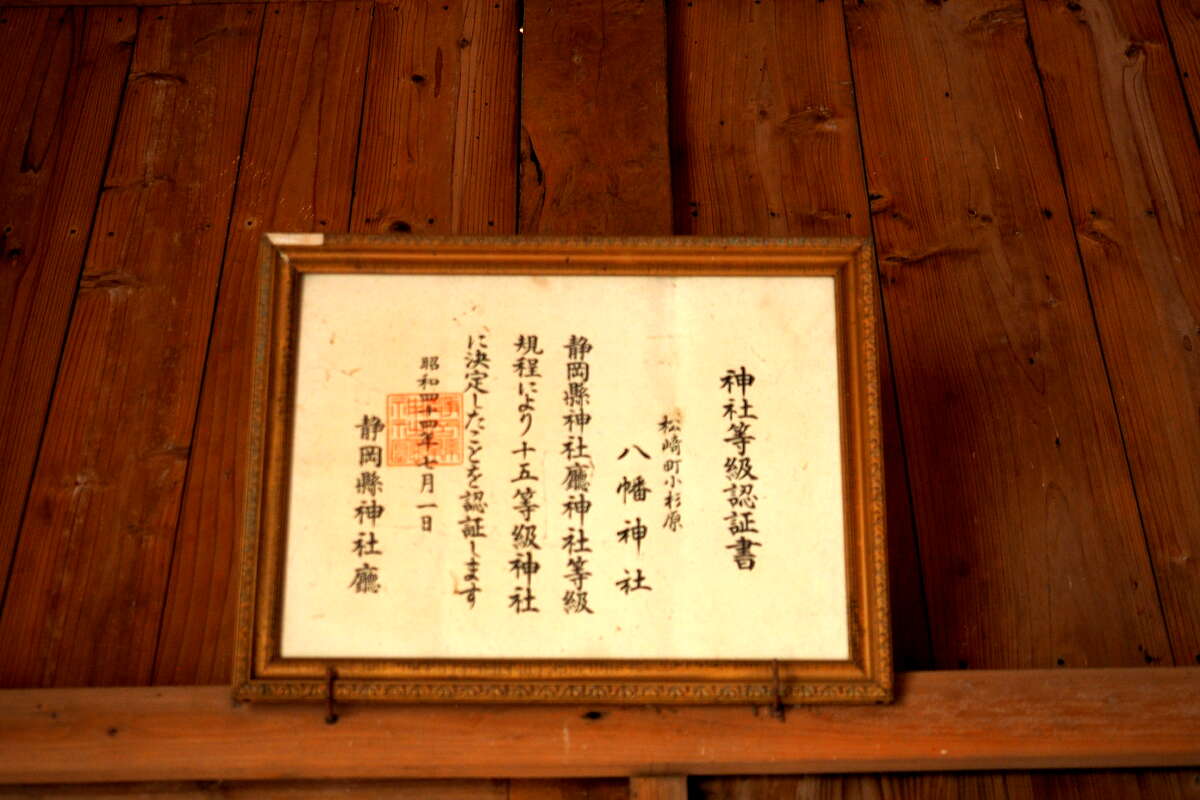 神社等級認証書
松崎町小杉原
八幡神社
静岡縣神社廳神社等級
規程により十五等級神社
に決定したことを認証します
昭和四十四年七月一日
静岡縣神社廳